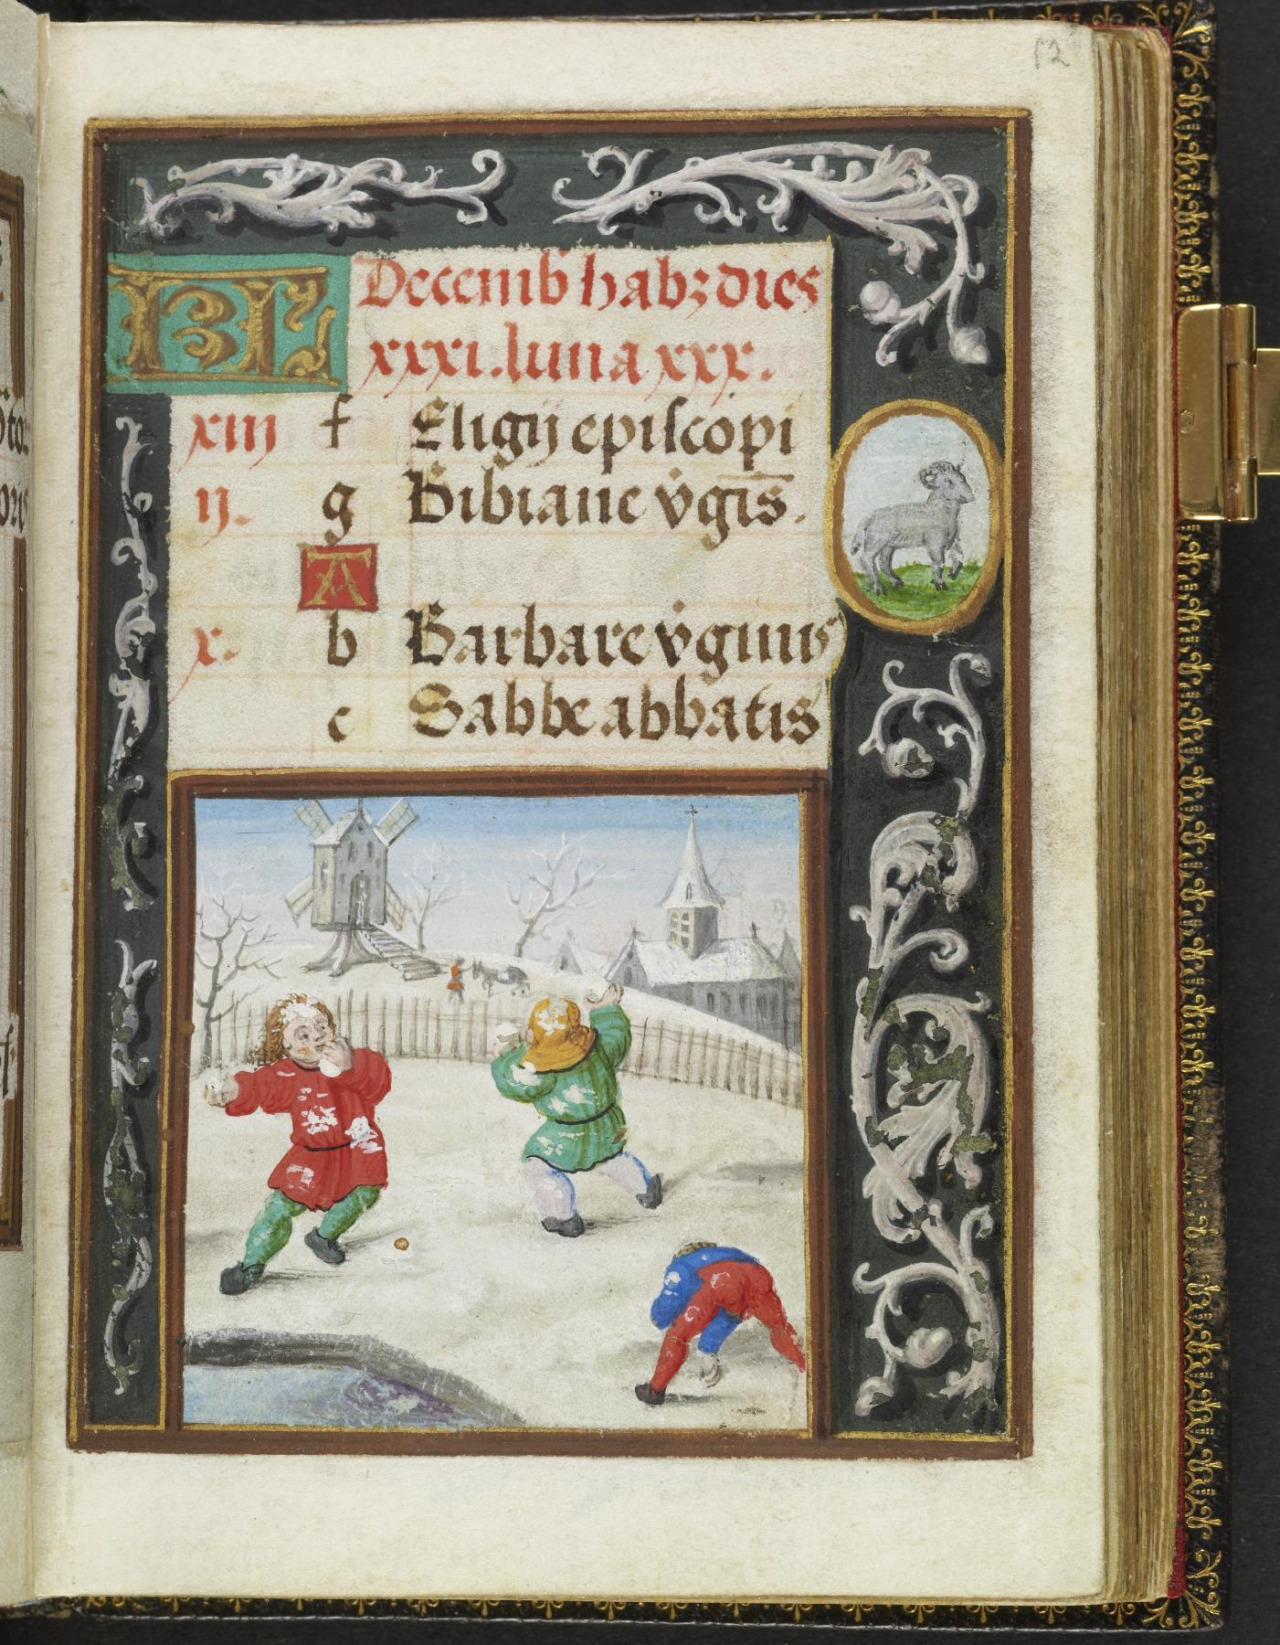 12
KL Decemb habꝫ dies
xxxi. luna xxx.
xiii f Eligij episcopi
ij. g Bibiane v̇gīs.
A
x. b Barbare v̇ginis
c Sabbe abbatis